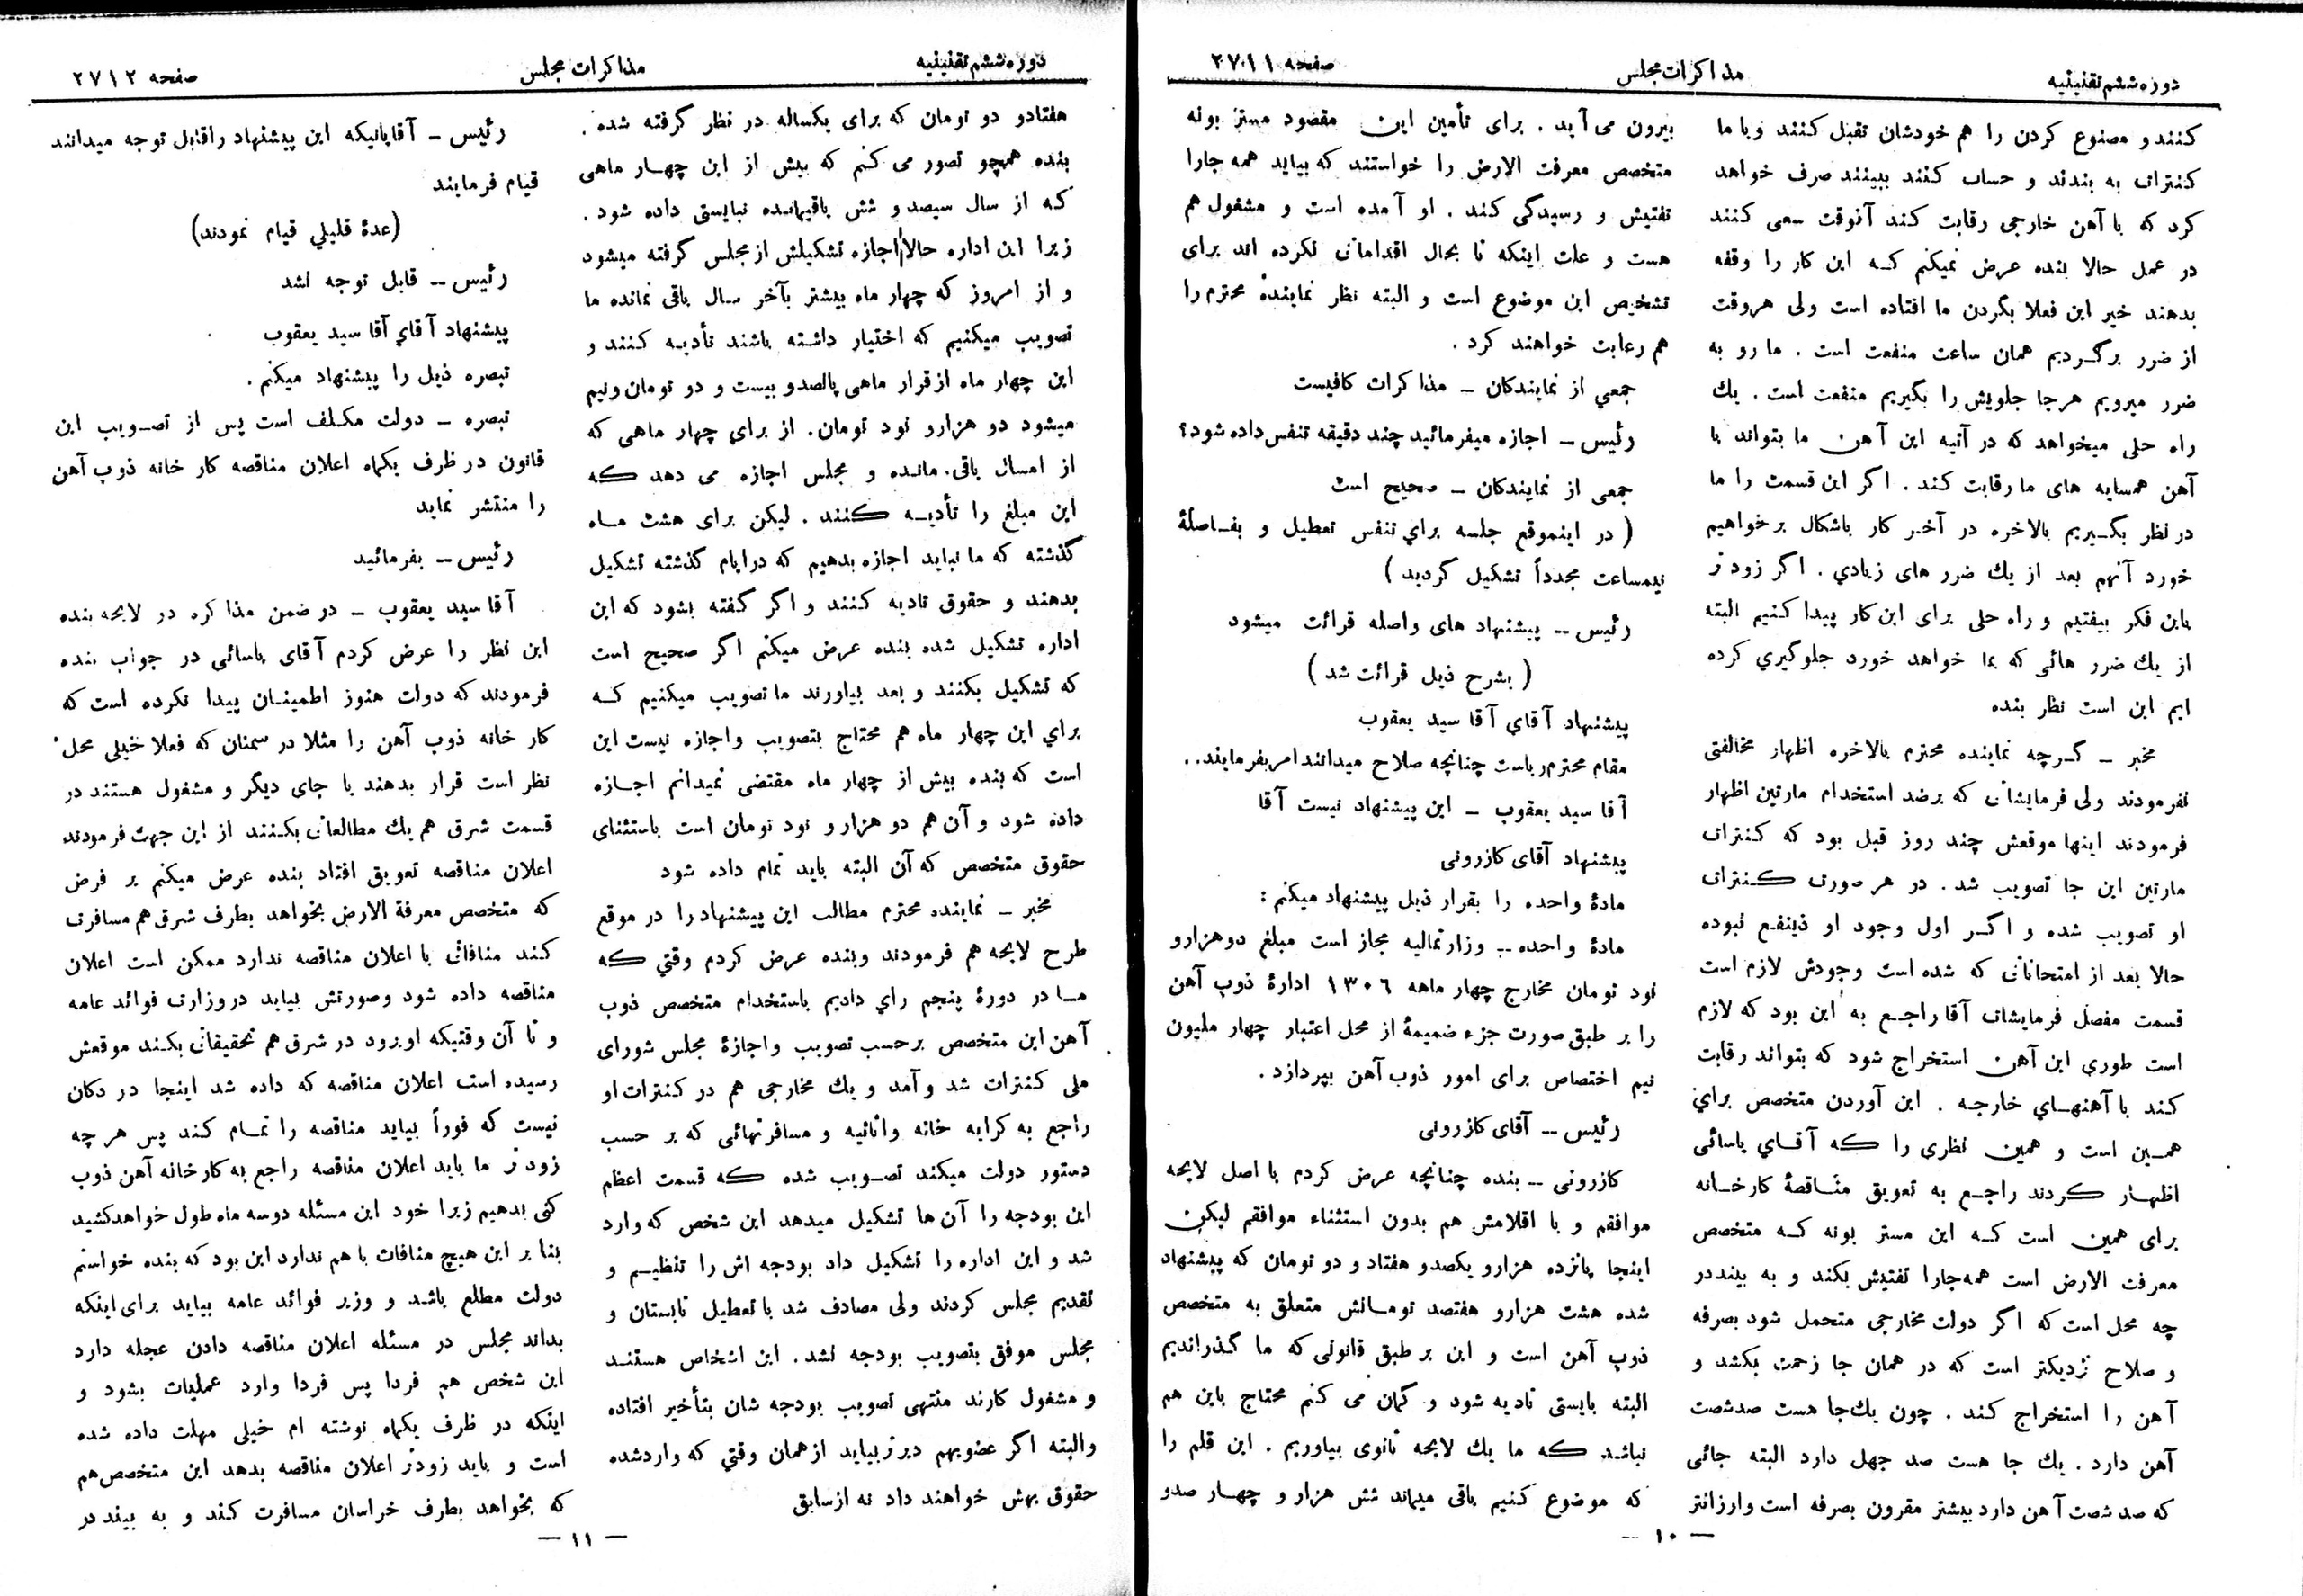 دوره ششم تقنینیه
مذاکرات مجلس
صفحه ۲۷۱۱
کنند و مصنوع کردن را هم خودشان تقبل کنند ویا ما
کنترات به بندند و حساب کنند ببینند صرف خواهد
کرد که با آهن خارجی رقابت کند آنوقت سعی کنند
در عمل حالا بنده عرض نمیکنم که این کار را وقفه
بدهند خیر این فعلا بگردن ما افتاده است ولی هروقت
از ضرر برگردیم همان ساعت منفعت است . ما رو به
ضرر میرویم هرجا جلویش را بگیریم منفعت است . یك
راه حلی میخواهد که در آتیه این آهن ما بتواند با
آهن همسایه های ما رقابت کند . اگر این قسمت را ما
در نظر بگیریم بالاخره در آخر کار باشکال برخواهیم
خورد آنهم بعد از یك ضرر های زیادي . اگر زودتر
باین فکر بیفتیم و راه حلی برای این کار پیدا کنیم البته
از یك ضرر هائی که بما خواهد خورد جلوگیري کرده
ایم این است نظر بنده
مخبر ـ گرچه نماینده محترم بالاخره اظهار مخالفتی
نفرمودند ولی فرمایشاتی که برضد استخدام مارتین اظهار
فرمودند اینها موقعش چند روز قبل بود که کنترات
مارتین این جا تصویب شد . در هر صورت کنترات
او تصویب شده و اگر اول وجود او ذینفع نبوده
حالا بعد از امتحاناتی که شده است وجودش لازم است
قسمت مفصل فرمایشات آقا راجع به این بود که لازم
است طوری این آهن استخراج شود که بتواند رقابت
کند با آهنهاي خارجه . این آوردن متخصص براي
همین است و همین نظری را که آقاي یاسائی
اظهار کردند راجع به تعویق مناقصۀ کارخانه
برای همین است که این مستر بونه که متخصص
معرفت الارض است همه جارا تفتیش بکند و به بیند در
چه محل است که اگر دولت مخارجی متحمل شود بصرفه
و صلاح نزدیکتر است که در همان جا زحمت بکشد و
آهن را استخراج کند . چون یك جا هست صدشصت
آهن دارد . یك جا هست صد چهل دارد البته جائی
که صد شصت آهن دارد بیشتر مقرون بصرفه است وارزانتر
بیرون می آید . برای تأمین این مقصود مستر بونه
متخصص معرفت الارض را خواستند که بیاید همه جارا
تفتیش و رسیدگی کند . او آمده است و مشغول هم
هست و علت اینکه تا بحال اقداماتی نکرده اند برای
تشخیص این موضوع است و البته نظر نمایندۀ محترم را
هم رعایت خواهند کرد .
جمعي از نمایندگان ـ مذاکرات کافیست
رئیس ـ اجازه میفرمائید چند دقیقه تنفس داده شود؟
جمعی از نمایندگان ـ صحیح است
( در اینموقع جلسه براي تنفس تعطیل و بفاصلۀ
نیمساعت مجدداً تشکیل گردید )
رئیس ـ پیشنهاد های واصله قرائت میشود
( بشرح ذیل قرائت شد )
پیشنهاد آقاي آقا سید یعقوب
مقام محترم ریاست چنانچه صلاح میدانند امر بفرمایند..
آقا سید یعقوب ـ این پیشنهاد نیست آقا
پیشنهاد آقای کازرونی
مادۀ واحده را بقرار ذیل پیشنهاد میکنم :
مادۀ واحده ـ وزارتمالیه مجاز است مبلغ دوهزارو
نود تومان مخارج چهار ماهه ۱۳۰۶ ادارۀ ذوب آهن
را بر طبق صورت جزء ضمیمۀ از محل اعتبار چهار ملیون
نیم اختصاص برای امور ذوب آهن بپردازد .
رئیس ـ آقای کازرونی
کازرونی ـ بنده چنانچه عرض کردم با اصل لایحه
موافقم و با اقلامش هم بدون استثناء موافقم لیکن
اینجا پانزده هزارو یکصدو هفتاد و دو تومان که پیشنهاد
شده هشت هزارو هفتصد تومانش متعلق به متخصص
ذوب آهن است و این بر طبق قانونی که ما گذراندیم
البته بایستی تادیه شود و گمان می کنم محتاج باین هم
نباشد که ما یك لایحه ثانوی بیاوریم . این قلم را
که موضوع کنیم باقی میماند شش هزار و چهار صدو
— ۱۰ —
دوره ششم تقنینیه
مذاکرات مجلس
صفحه ۲۷۱۲
هفتادو دو تومان که برای یکساله در نظر گرفته شده .
بنده همچو تصور می کنم که بیش از این چهار ماهی
که از سال سیصد و شش باقیمانده نبایستی داده شود .
زیرا این اداره حالا اجازه تشکیلش از مجلس گرفته میشود
و از امروز که چهار ماه بیشتر بآخر سال باقی نمانده ما
تصویب میکنیم که اختیار داشته باشند تأدیه کنند و
این چهار ماه ازقرار ماهی پالصدو بیست و دو تومان ونیم
میشود دو هزارو نود تومان. از براي چهار ماهی که
از امسال باقی مانده و مجلس اجازه می دهد که
این مبلغ را تأدیه کنند . لیکن برای هشت ماه
گذشته که ما نباید اجازه بدهیم که درایام گذشته تشکیل
بدهند و حقوق تادیه کنند و اگر گفته بشود که این
اداره تشکیل شده بنده عرض میکنم اگر صحیح است
که تشکیل بکنند و بعد بیاورند ما تصویب میکنیم که
براي این چهار ماه هم محتاج بتصویب واجازه نیست این
است که بنده بیش از چهار ماه مقتضی نمیدانم اجازه
داده شود و آن هم دو هزار و نود تومان است باستثنای
حقوق متخصص که آن البته باید تمام داده شود
مخبر ـ نماینده محترم مطالب این پیشنهاد را در موقع
طرح لایحه هم فرمودند وبنده عرض کردم وقتي که
ما در دورۀ پنجم راي دادیم باستخدام متخصص ذوب
آهن این متخصص برحسب تصویب واجازۀ مجلس شورای
ملی کنترات شد و آمد و یك مخارجی هم در کنترات او
راجع به کرایه خانه واثاثیه و مسافرتهائی که بر حسب
دستور دولت میکند تصویب شده که قسمت اعظم
این بودجه را آن ها تشکیل میدهد این شخص که وارد
شد و این اداره را تشکیل داد بودجه اش را تنظیم و
تقدیم مجلس کردند ولی مصادف شد با تعطیل تابستان و
مجلس موفق بتصویب بودجه نشد . این اشخاص هستند
و مشغول کارند منتهی تصویب بودجه شان بتأخیر افتاده
والبته اگر عضویهم دیرتر بیاید از همان وقتي که وارد شده
حقوق بهش خواهند داد نه ازسابق
رئیس ـ آقایانیکه این پیشنهاد راقابل توجه میدانند
قیام فرمایند
(عدۀ قلیلي قیام نمودند)
رئیس ـ قابل توجه نشد
پیشنهاد آقاي آقا سید یعقوب
تبصره ذیل را پیشنهاد میکنم .
تبصره ـ دولت مکلف است پس از تصویب این
قانون در ظرف یکماه اعلان مناقصه کار خانه ذوب آهن
را منتشر نماید
رئیس ـ بفرمائید
آقا سید یعقوب ـ در ضمن مذاکره در لایحه بنده
این نظر را عرض کردم آقای یاسائی در جواب بنده
فرمودند که دولت هنوز اطمینان پیدا نکرده است که
کار خانه ذوب آهن را مثلا در سمنان که فعلا خیلی محل
نظر است قرار بدهند یا جای دیگر و مشغول هستند در
قسمت شرق هم یك مطالعاتی بکنند از این جهت فرمودند
اعلان مناقصه تعویق افتاد بنده عرض میکنم بر فرض
که متخصص معرفة الارض بخواهد بطرف شرق هم مسافرت
کند منافاتی با اعلان مناقصه ندارد ممکن است اعلان
مناقصه داده شود وصورتش بیاید در وزارت فوائد عامه
و تا آن وقتیکه او برود در شرق هم تحقیقاتی بکند موقعش
رسیده است اعلان مناقصه که داده شد اینجا در دکان
نیست که فوراً بیاید مناقصه را تمام کند پس هر چه
زودتر ما باید اعلان مناقصه راجع به کارخانه آهن ذوب
کنی بدهیم زیرا خود این مسئله دوسه ماه طول خواهدکشید
بنا بر این هیچ منافات با هم ندارد این بود که بنده خواستم
دولت مطلع باشد و وزیر فوائد عامه بیاید برای اینکه
بداند مجلس در مسئله اعلان مناقصه دادن عجله دارد
این شخص هم فردا پس فردا وارد عملیات بشود و
اینکه در ظرف یکماه نوشته ام خیلی مهلت داده شده
است و باید زودتر اعلان مناقصه بدهد این متخصص هم
که بخواهد بطرف خراسان مسافرت کند و به بیند در
— ۱۱ —